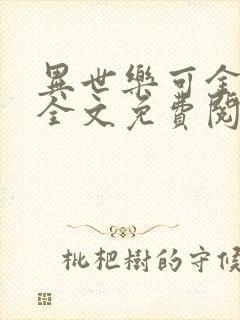 異世樂可全
全文免費閱
枇杷樹的守候